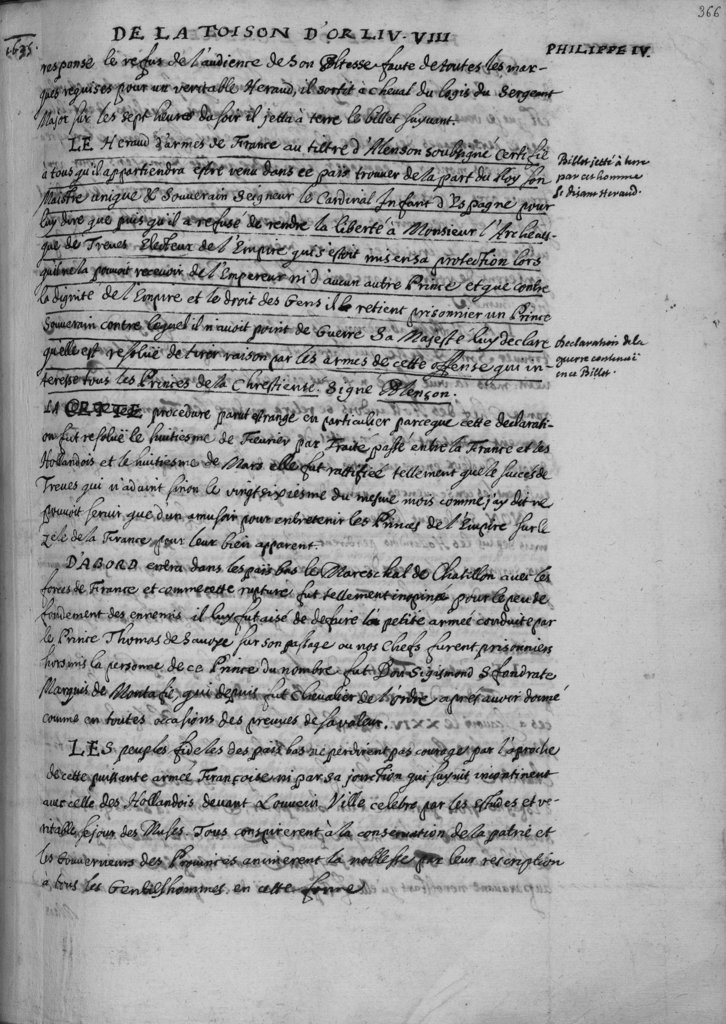 366
DE LA TOISON D'OR LIV. VIII
1635.
PHILIPPE IV.
response le refus de l'audience de Son Altesse faute de toutes les mar-
ques requises pour un veritable Heraud, il sortit a cheval du logis du Sergeant
Major sur les sept heures du soir il jetta à terre le billet suyvant.
LE Heraud d'armes de France au tiltre d'Alenson soubsigné certifie
à tous qu'il appartiendra estre venu dans ce pais trouver de la part du Roy son
Maistre unique & Souverain Seigneur le Cardinal Infant d'Espagne pour
luy dire que puis qu'il a refusé de rendre la liberté à Monsieur l'Archeves-
que de Treves Electeur de l'Empire qui s'estoit mis en sa protection lors
qu'il ne la pouvoit recevoir de l'Empereur ni d'aucun autre Prince et que contre
la dignite de l'Empire et le droit des Gens il le retient prisonnier un Prince
Souverain contre lequel il n'avoit point de Guerre Sa Majesté luy declare
qu'elle est resolüe de tirer raison par les armes de cette offense qui in-
teresse tous les Princes de la Chrestiente. Signe Alençon.
Billet jetté à terre
par cet homme
se disant Heraud.
Declaration de la
guerre contenüe
en ce Billet.
LA procedure parut estrange en particulier parceque cette declarati-
on fut resolüe le huitiesme de Fevrier par Traité passé entre la France et les
Hollandois et le huitiesme de Mars elle fut rattifiée tellement que le succes de
Treves qui n'advint sinon le vingtsixiesme du mesme mois comme j'ay dit ne
pouvoit servir que d'un amusoir pour entretenir les Princes de l'Empire sur le
zele de la France pour leur bien apparent.
D'ABORD entra dans les pais bas le Mareschal de Chatillon avec les
forces de France et comme cette rupture fut tellement inopine pour le peu de
fondement des ennemis il luy fut aisé de defaire la petite armée conduite par
le Prince Thomas de Savoye sur son passage ou nos Chefs furent prisonniers
horsmis la personne de ce Prince du nombre fut Don Sigismond Sfandrate
Marquis de Montafie qui depuis fut Chevalier de l'ordre apres avoir donné
comme en toutes occasions des preuves de sa valeur.
LES peuples fideles des pais bas ne perdirent pas courage par l'aproche
de cette puissante armée Françoise ni par sa jonction qui suyvit incontinent
avec celle des Hollandois devant Louvein Ville celebre par les estudes et ve-
ritable sejour des Muses. Tous conspirerent à la conservation de la patrie et
les Gouverneurs des Provinces animerent la noblesse par leur rescription
à tous les Gentilshommes en cette forme